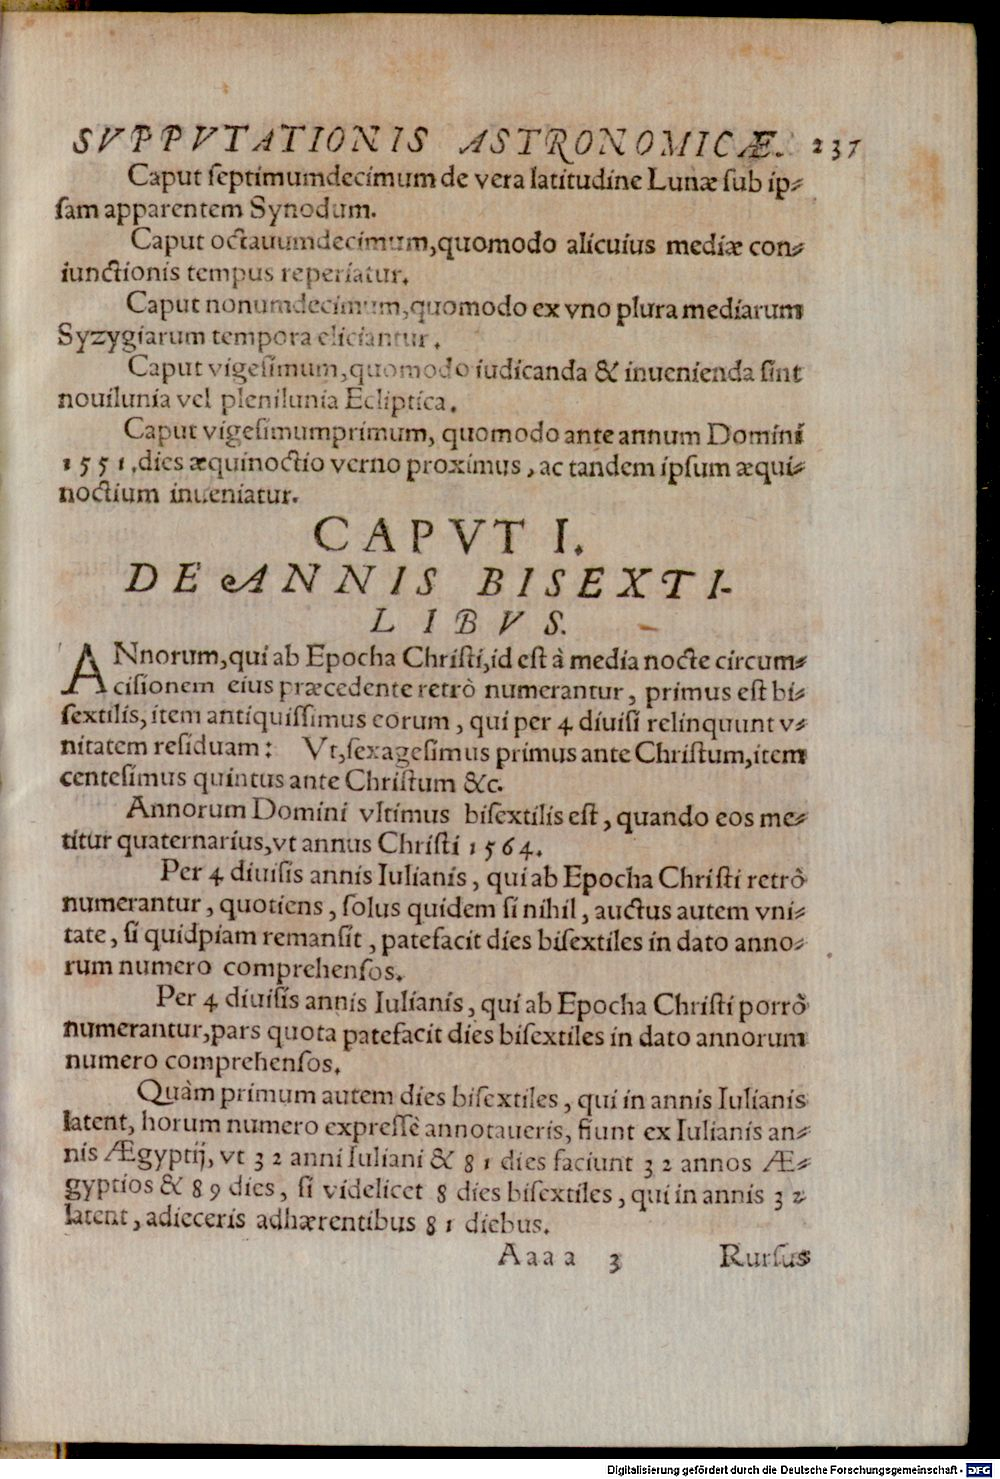 SVPPVTATIONIS ASTRONOMICÆ. 237
Caput ſeptimumdecimum de vera latitudine Lunæ ſub ip⸗
ſam apparentem Synodum.
Caput octauumdecimum, quomodo alicuius mediæ con⸗
iunctionis tempus reperiatur.
Caput nonumdecimum, quomodo ex vno plura mediarum
Syzygiarum tempora eliciantur.
Caput vigeſimum, quomodo iudicanda & inuenienda ſint
nouilunia vel plenilunia Ecliptica.
Caput vigeſimumprimum, quomodo ante annum Domini
1551, dies æquinoctio verno proximus, ac tandem ipſum æqui⸗
noctium inueniatur.
CAPVT I.
DE ANNIS BISEXTI-
LIBVS.
ANnorum, qui ab Epocha Chriſti, id eſt à media nocte circum⸗
ciſionem eius præcedente retrò numerantur, primus eſt bi⸗
ſextilis, item antiquiſſimus eorum, qui per 4 diuiſi relinquunt v⸗
nitatem reſiduam: Vt, ſexageſimus primus ante Chriſtum, item
centeſimus quintus ante Chriſtum &c.
Annorum Domini vltimus biſextilis eſt, quando eos me⸗
titur quaternarius, vt annus Chriſti 1564.
Per 4 diuiſis annis Iulianis, qui ab Epocha Chriſti retrò
numerantur, quotiens, ſolus quidem ſi nihil, auctus autem vni⸗
tate, ſi quidpiam remanſit, patefacit dies biſextiles in dato anno⸗
rum numero comprehenſos.
Per 4 diuiſis annis Iulianis, qui ab Epocha Chriſti porrò
numerantur, pars quota patefacit dies biſextiles in dato annorum
numero comprehenſos.
Quàm primum autem dies biſextiles, qui in annis Iulianis
latent, horum numero expreſſè annotaueris, fiunt ex Iulianis an⸗
nis Ægyptij, vt 32 anni Iuliani & 81 dies faciunt 32 annos Æ⸗
gyptios & 89 dies, ſi videlicet 8 dies biſextiles, qui in annis 32
latent, adieceris adhærentibus 81 diebus.
Aaaa 3 Rurſus
Digitalisierung gefördert durch die Deutsche Forschungsgemeinschaft - DFG